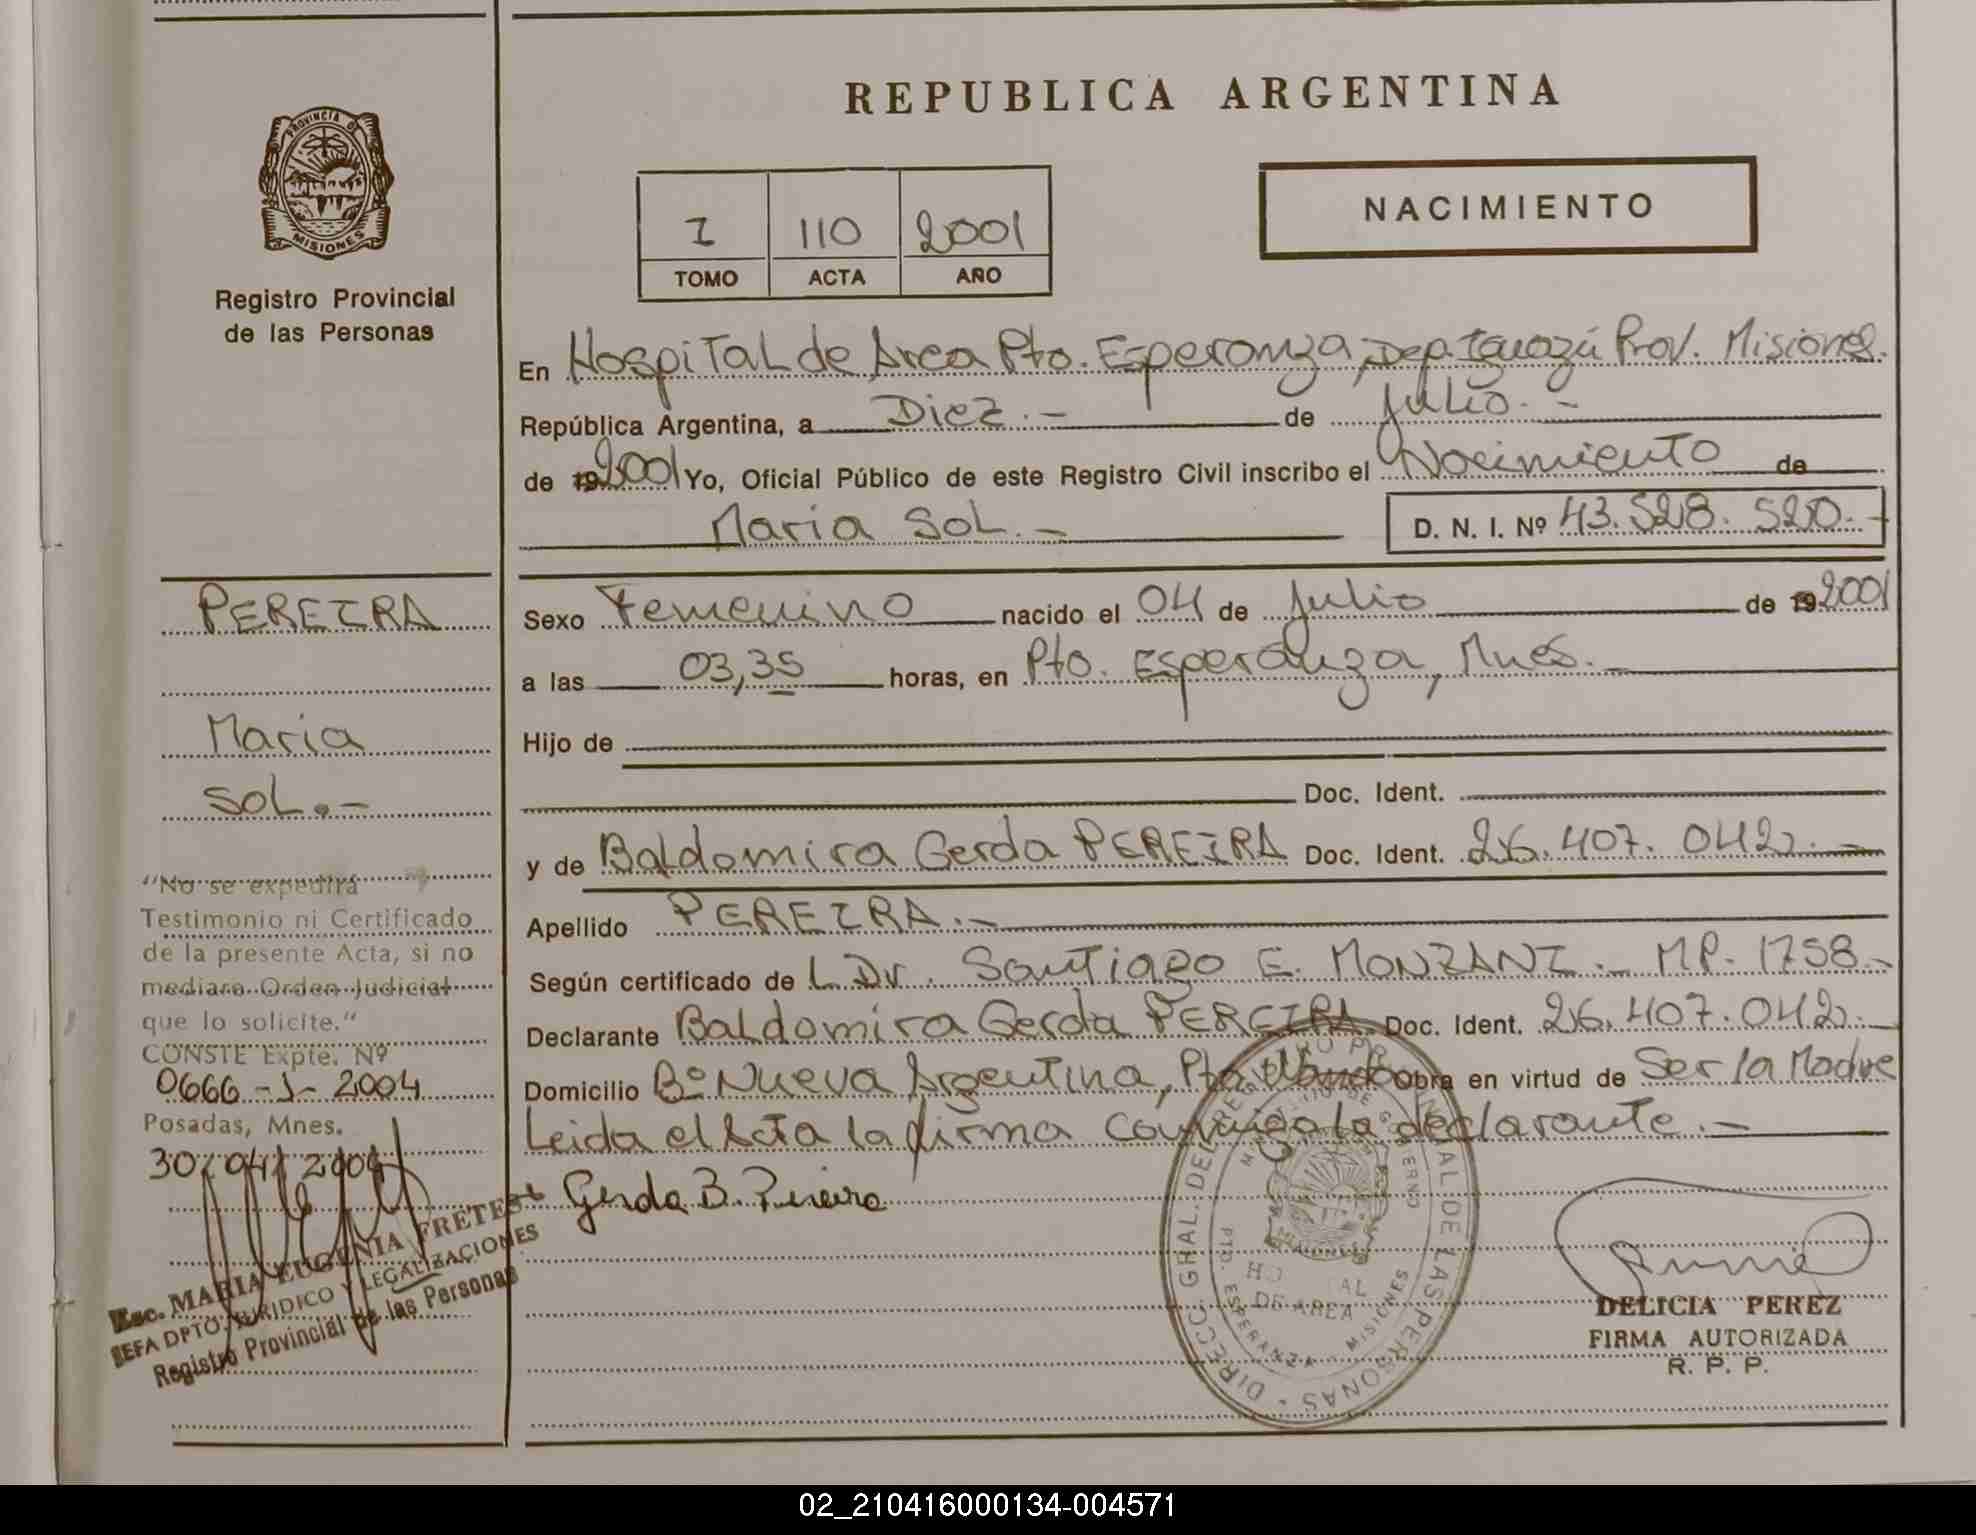 REPUBLICA ARGENTINA
PROVINCIA DE
MISIONES
Registro Provincial
de las Personas
I 110 2001
TOMO ACTA AÑO
NACIMIENTO
En Hospital de Area Pto. Esperanza, Dep. Iguazú Prov. Misiones.
República Argentina, a Diez.- de Julio.-
de 19 2001 Yo, Oficial Público de este Registro Civil inscribo el Nacimiento de
Maria Sol.- D. N. I. Nº 43.528.520.-
PEREIRA
Maria
Sol.-
Sexo Femenino nacido el 04 de Julio de 19 2001
a las 03,35 horas, en Pto. Esperanza, Mnes.-
Hijo de
Doc. Ident.
y de Baldomira Gerda PEREIRA Doc. Ident. 26.407.042.-
Apellido PEREIRA.-
Según certificado de L Dr. Santiago E. MONZANI.- MP. 1758.-
Declarante Baldomira Gerda PEREIRA Doc. Ident. 26.407.042.-
Domicilio Bº Nueva Argentina, Pto. Obra en virtud de Ser la Madre
Leida el Acta la firma conmigo la declarante.-
Gerda B. Pereira
"No se expedirá
Testimonio ni Certificado
de la presente Acta, si no
mediare Orden Judicial
que lo solicite."
CONSTE Expte. Nº
0666-J-2004
Posadas, Mnes.
30/04/2004
Esc. MARIA EUGENIA FRETES
JEFA DPTO. JURIDICO Y LEGALIZACIONES
Registro Provincial de las Personas
DIRECC. GRAL. DEL REGISTRO PROVINCIAL DE LAS PERSONAS
MINISTERIO DE GOBIERNO
HOSPITAL
DE AREA
PTO. ESPERANZA - MISIONES
DELICIA PEREZ
FIRMA AUTORIZADA
R. P. P.
02_210416000134-004571